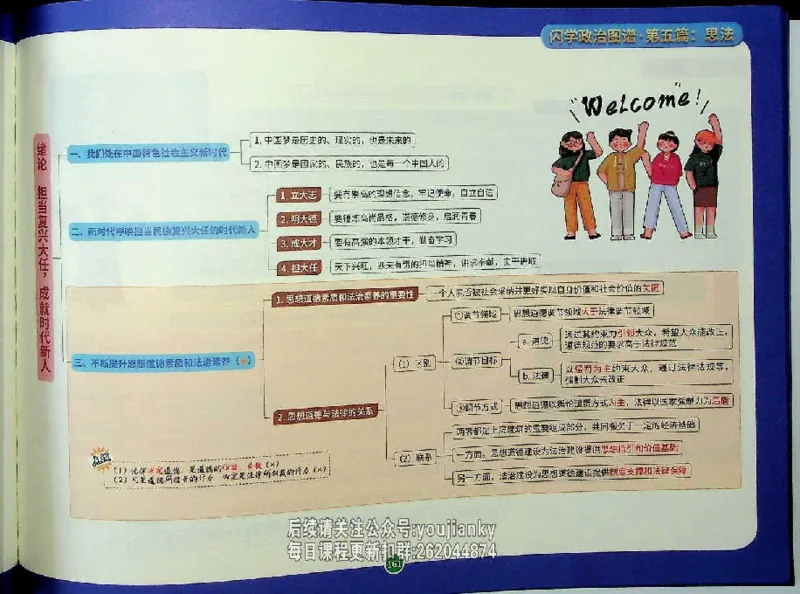 闪学政治图谱·第五篇：思法
Welcome!
绪论 担当复兴大任，成就时代新人
一、我们处在中国特色社会主义新时代
1. 中国梦是历史的、现实的，也是未来的
2. 中国梦是国家的、民族的，也是每一个中国人的
二、新时代呼唤担当民族复兴大任的时代新人
1. 立大志
要有崇高的理想信念，牢记使命，自立自信
2. 明大德
要锤炼高尚品格，崇德修身，启润青春
3. 成大才
要有高强的本领才干，勤奋学习
4. 担大任
天下兴旺，匹夫有责的担当精神，讲求奉献，实干进取
三、不断提升思想道德素质和法治素养（★）
1. 思想道德素质和法治素养的重要性
一个人能否被社会采纳并更好实现自身价值和社会价值的关键
2. 思想道德与法律的关系
（1）区别
①调节领域
思想道德调节领域大于法律调节领域
②调节目标
a. 道德
通过其约束力引领大众，希望大众能改正，
道德规范的要求高于法律规范
b. 法律
以惩罚为主约束大众，通过法律法规等，
强制大众去改正
③调节方式
思想道德以舆论谴责方式为主，法律以国家强制力为后盾
（2）联系
两者都是上层建筑的重要组成部分，共同服务于一定的经济基础
一方面，思想道德建设为法治建设提供思想指引和价值基础
另一方面，法治建设为思想道德建设提供制度支撑和法律保障
（1）法律 道德，是道德的 （×）
（2）凡是道德所 的行为 是法律所制裁的行为（×）
后续请关注公众号:youjianky
每日课程更新扣群:262044874
161